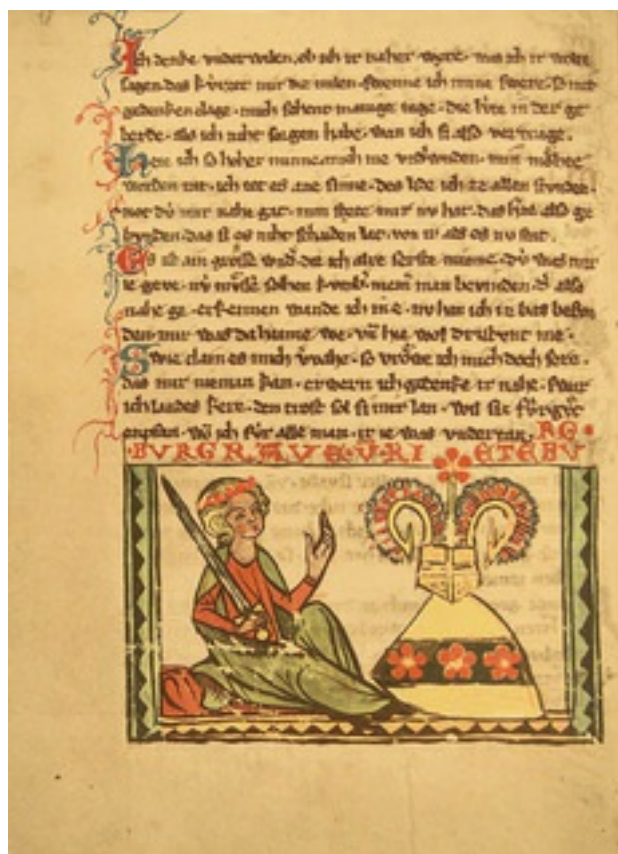 Ich denke vnder wilen. ob ich ir naher were. was ich ir wolte
sagen. das kúrzet mir die milen. swenne ich mine swere. so mit
gedenken clage. mich sehent manige tage. die lúte in der ge
berde. als ich niht sorgen habe. wan ich si also vertrage.
Hete ich so hoher minne. mich nie
werden rat. ich tet es ane sinne. des lide ich ze allen stunden.
not dú mir nahe gat. min stete mir nv hat. das also ge
bunden. das si es niht schaiden lat. von ir als es nv stat.
Es ist ain grosse die ich alre serste minne. dú was mir
ie geve. nv músse solhen man bevinden. also
nahe ge. erkennen wande ich in e. nv han ich in bas befun
den. mir was da haime we. vñ hie wol dristunt me.
Swie clain es mich so vrowe ich mich doch sere.
das mir nieman kan. erwern ich gedenke ir nahe. swar
ich landes kere. den trost sol si mir lan. wil sis fúr gůt
enpfan. ich fúr alle man. ir ie was vndertan. RG.
BVRGRAVE.V.RIETEBV